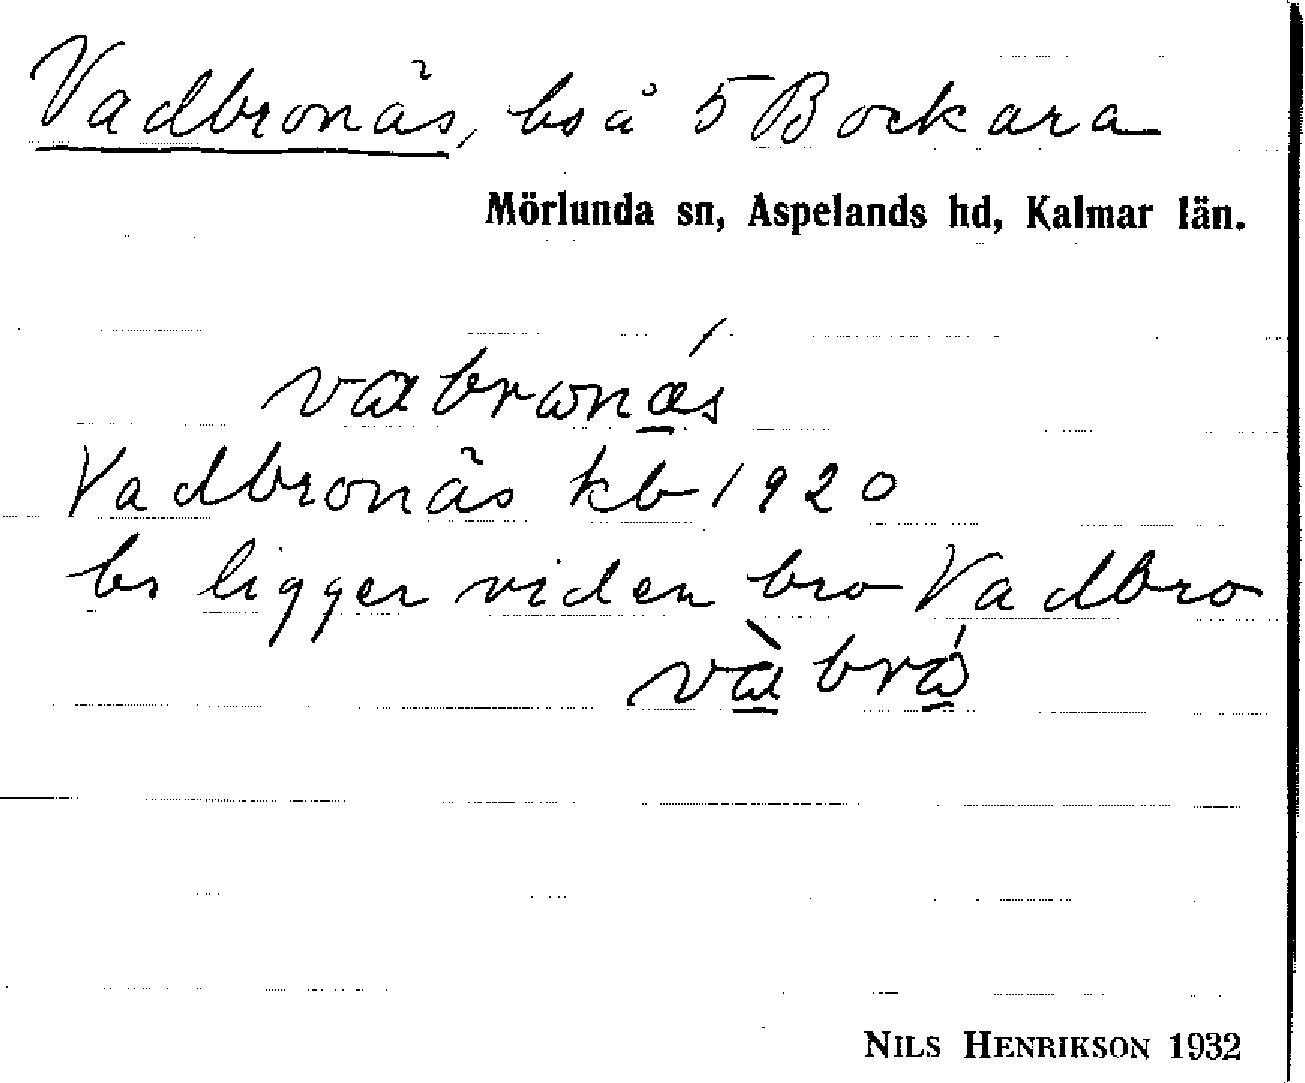 Vadbronäs, bs å 5 Bockara
Mörlunda sn, Aspelands hd, Kalmar län.
vabronäs
Vadbronäs kb 1920
bs ligger vid en bro Vadbro
NILS HENRIKSON 1932